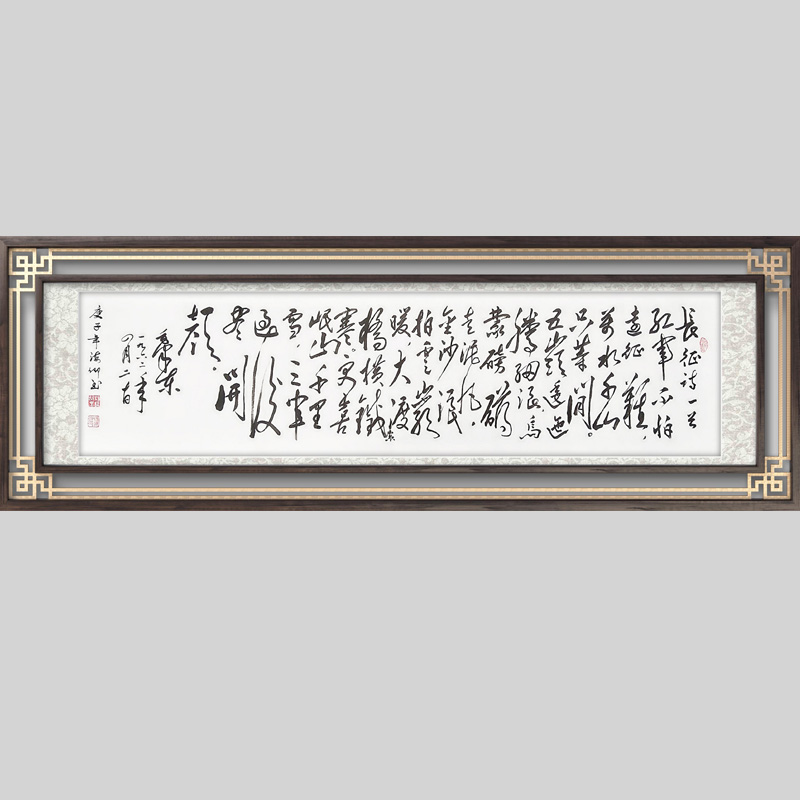 長征诗一首
紅軍不怕
遠征難，
萬水千山
只等閒。
五嶺逶迤
騰細浪，烏
蒙磅礴
走泥丸。
金沙浪
拍雲巖
暖，大渡
橋橫鐵索
寒。更喜
岷山千里
雪，三軍
過後
盡開
顏。
毛澤东
一九六二年
四月二十日
庚子年